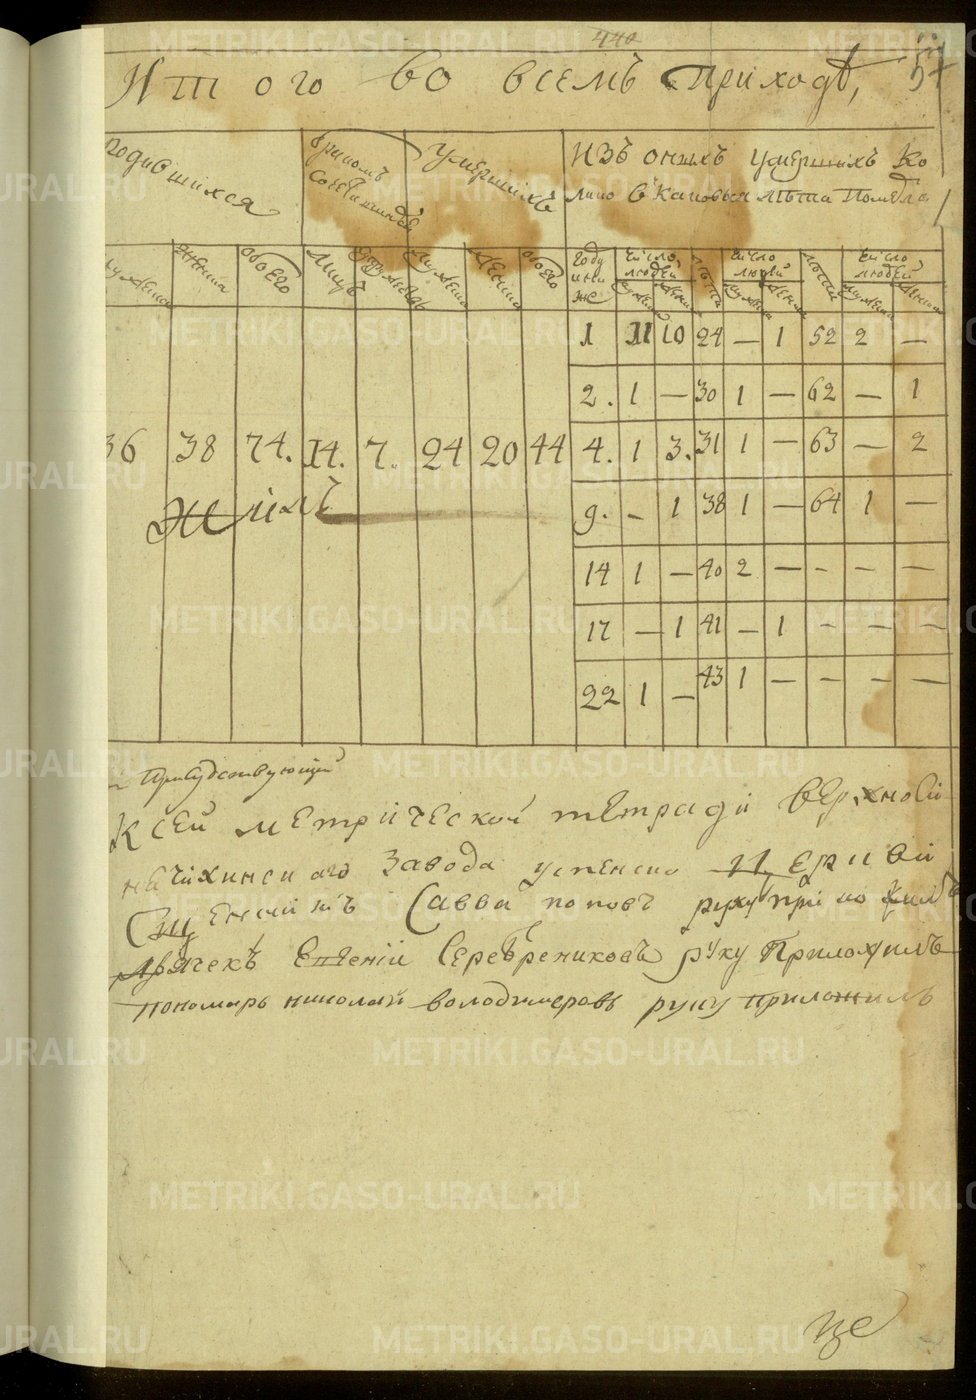 440
57
Итого во всемъ приходѣ,
родившихся
бракомъ сочетавшихся
Умершихъ
изъ оныхъ умершихъ ко
лико в каковыя лѣта померло
мужеска женска обоего лицъ мужеска женска обоего
году и ниже число людей мужеска женска лѣта число людей мужеска женска лѣта число людей мужеска женска
1 11 10 24 — 1 52 2 —
2. 1 — 30 1 — 62 — 1
36 38 74. 14. 7. 24 20 44 4. 1 3. 31 1 — 63 — 2
9. - 1 38 1 — 64 1 —
14 1 — 40 2 — - — —
17 — 1 41 — 1 - - —
22 1 — 43 1 — — — —
Присудствующий
К сей метрической тетради верхноси
начихинскаго завода успенско церкви
Священникъ Савва поповъ руку приложилъ
дьячекъ Евгений Серебрениковъ руку Приложилъ
пономарь николай володимеровъ руку приложилъ
METRIKI.GASO-URAL.RU